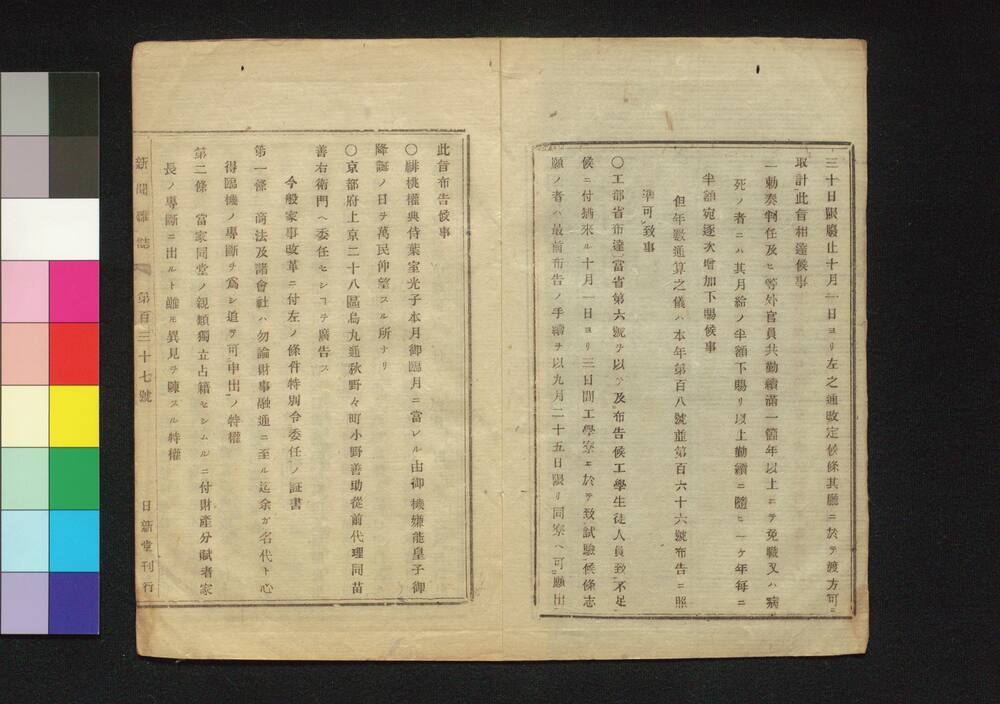 三十日限廢止十月一日ヨリ左之通改定候條其廳ニ於テ渡方可ニ
取計此旨相達候事
一勅奏判任及ヒ等外官員共勤續滿一箇年以上ニテ免職又ハ病
死ノ者ニハ其月給ノ半額下賜リ以上勤續ニ隨ヒ一ケ年每ニ
半額宛逐次增加下賜候事
但年數通算之儀ハ本年第百八號並第百六十六號布告ニ照
準可致事
〇工部省布達當省第六號ヲ以テ及布告候工學生徒人員致不足
候ニ付猶來ル十月一日ヨリ三日間工學寮ニ於テ致試驗候條志
願ノ者ハ最前布告ノ手續ヲ以九月二十五日限リ同寮ヘ可願出
此旨布告候事
〇緋桃權典侍葉室光子本月御臨月ニ當レル由御機嫌能皇子御
降誕ノ日ヲ萬民仰望スル所ナリ
〇京都府上京二十八區烏丸通秋野々町小野善助從前代理同苗
善右衛門ヘ委任セシヿヲ廣告ス
今般家事改革ニ付左ノ條件特別令委任ノ証書
第一條 商法及諸會社ハ勿論財事融通ニ至ル迄余カ名代ト心
得臨機ノ專斷ヲ爲シ追テ可申出ノ特權
第二條 當家同堂ノ親類獨立占籍セシムルニ付財產分賦者家
長ノ專斷ニ出ルト雖モ異見ヲ陳スル特權
新聞雜誌 第百三十七號 日新堂刊行